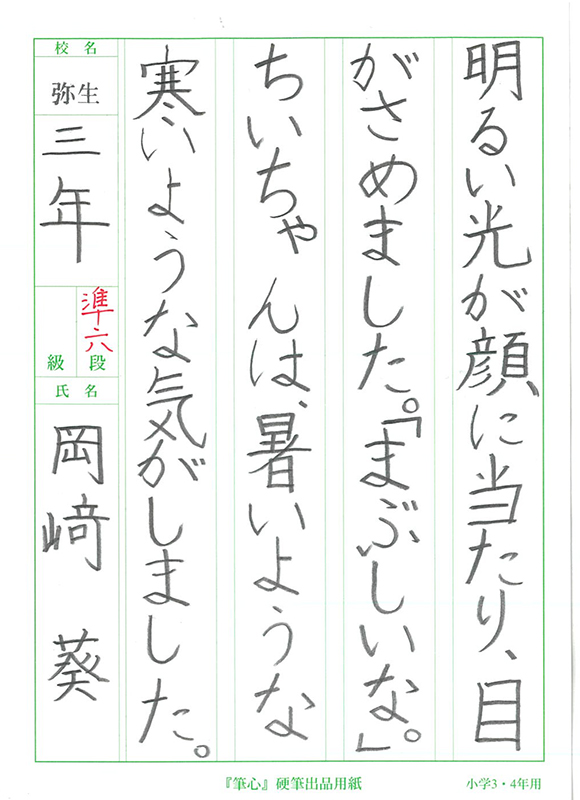 明るい光が顔に当たり、目
がさめました。「まぶしいな。」
ちいちゃんは、暑いような
寒いような気がしました。
校名
弥生
三年
準六
段
級
氏名
岡﨑 葵
『筆心』硬筆出品用紙
小学3・4年用